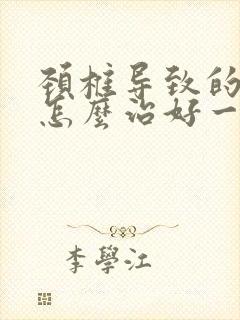 颈椎导致的
怎麼治好一
李學江